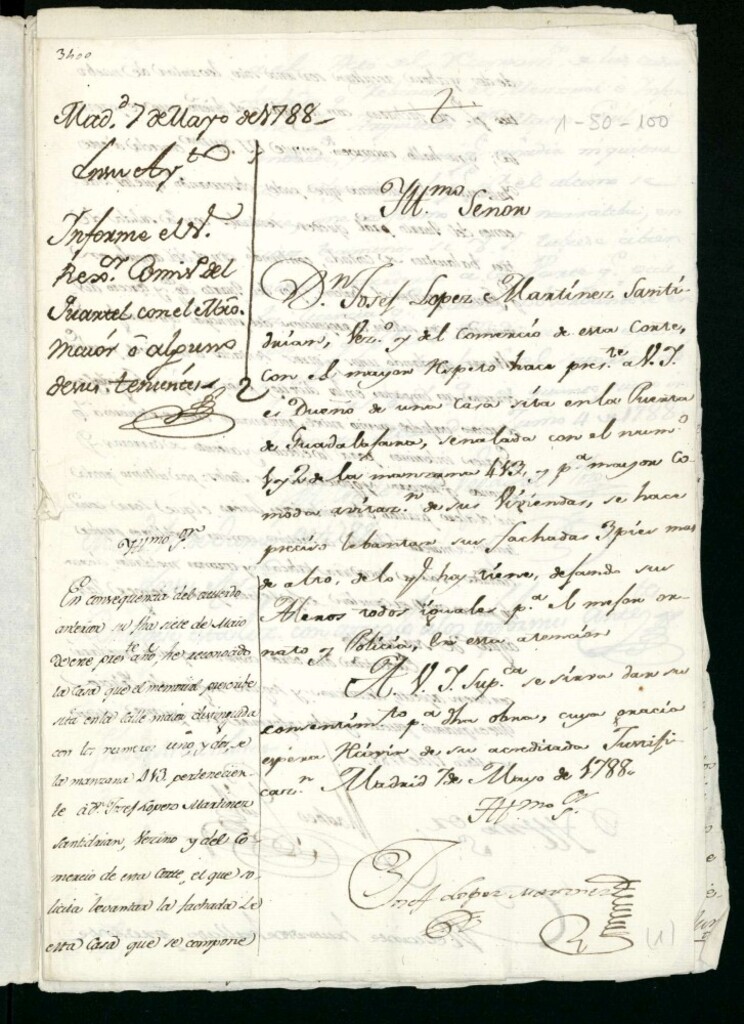 3400
Mad.d 7 de Mayo de 1788
En su Ay.to
Informe el S.r
Rex.or Comis.o del
Quartel con el Mro.
maior ô alguno
de sus tenientes
1-50-100
Yll.mo Señor
D.n Josef Lopez Martinez Santi-
drian, Vez.o y del Comercio de esta Corte,
con el mayor respeto hace pres.te a V.I.
es Dueño de una Casa sita en la Puerta
de Guadalaxara, señalada con el num.o
1 y 2 de la manzana 413, y p.a mayor co-
moda avitaz.n de sus Viviendas, se hace
preciso lebantar sus fachadas 3 pies mas
de alto, de lo q.e hoy tiene, dejando sus
Aleros todos iguales p.a el mejor or-
nato y Policia, En esta atencion
A V.I. Sup.ca se sirva dar su
consentim.to p.a dha obra, cuya gracia
espera Rèvir de su acreditada Justifi-
caz.n Madrid 7 de Mayo de 1788.
Yll.mo S.or
Josef Lopez Martinez
Yll.mo S.or
En consequencia del acuerdo
anterior su fha siete de Maio
de este pres.te año, he reconocido
la Casa que el memorial prescribe
sita en la calle maior distinguida
con los numeros uno, y dos, de
la manzana 413 pertenecien-
te à D.n Josef Lopez Martinez
Santidrian, Vezino y del Co-
mercio de esta Corte, el que so-
licita levantar la fachada de
esta Casa que se compone
(1)